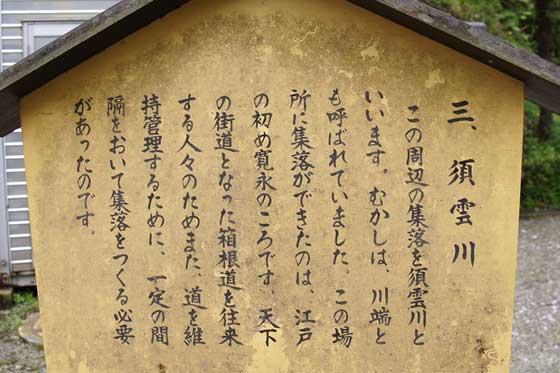 三、須雲川
この周辺の集落を須雲川と
いいます。むかしは、川端と
も呼ばれていました。この場
所に集落ができたのは、江戸
の初め寛永のころです。天下
の街道となった箱根道を往来
する人々のためまた、道を維
持管理するために、一定の間
隔をおいて集落をつくる必要
があったのです。